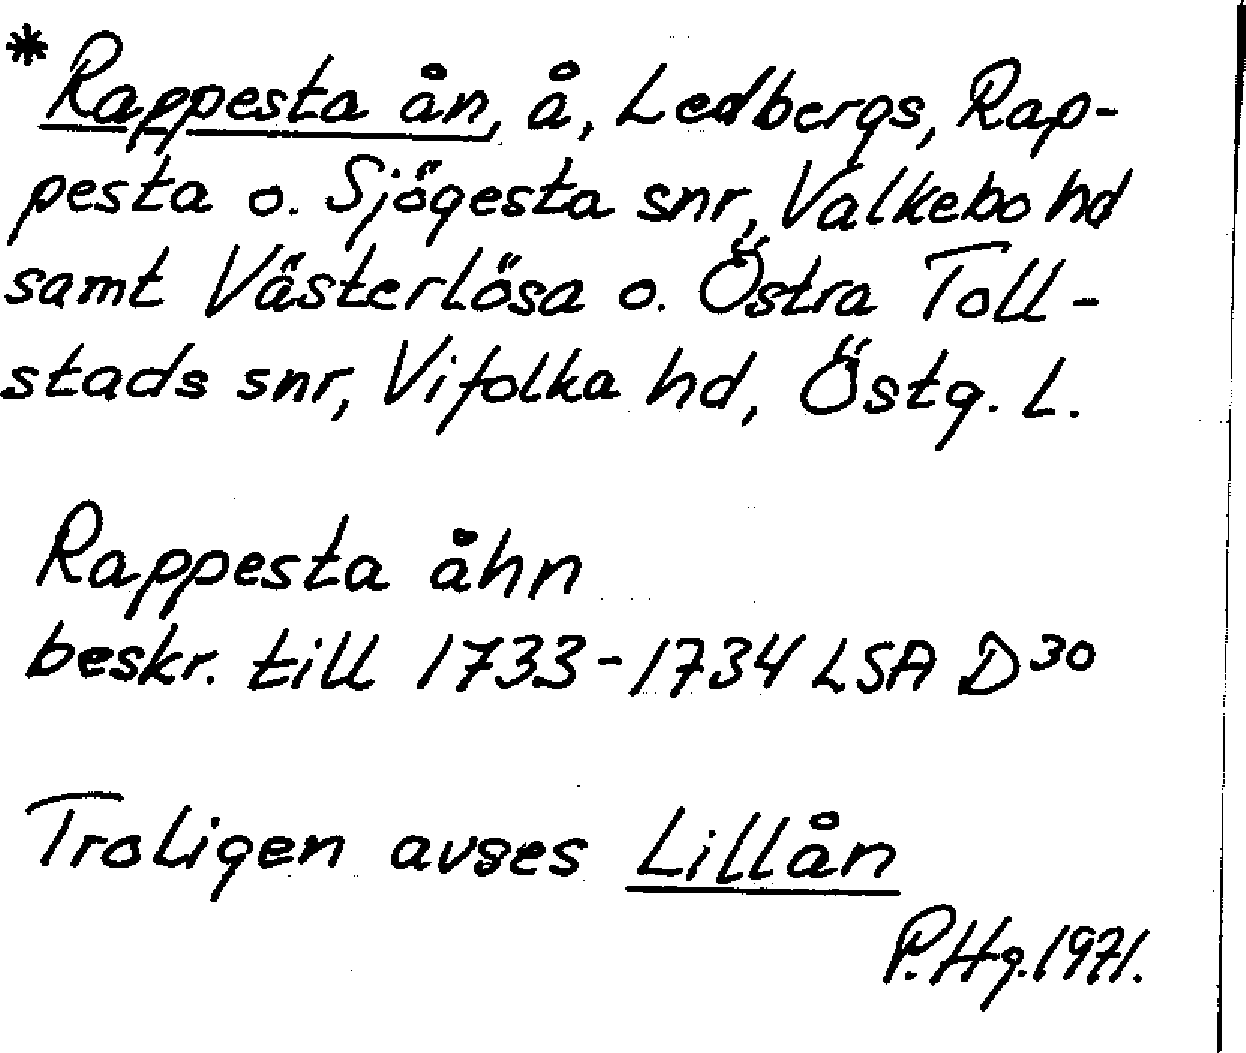 * Rappesta ån, å, Ledbergs, Rap-
pesta o. Sjögesta snr, Valkebo hd
samt Västerlösa o. Östra Toll-
stads snr, Vifolka hd, Östg. L.
Rappesta åhn
beskr. till 1733-1734 LSA D30
Troligen avses Lillån
P. Hg. 1971.